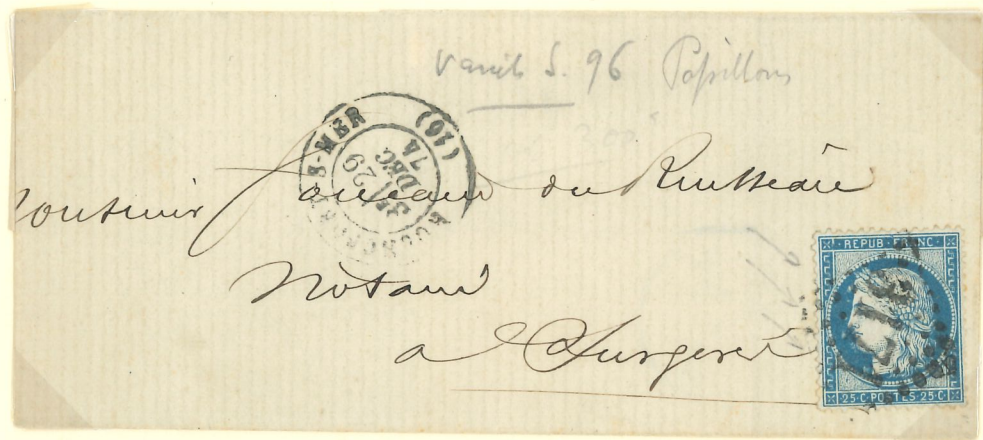 S. 96 Papillons
ROCHEFORT-S-MER (16)
3E
29
DEC
74
Monsieur
du Ruisseau
Notaire
a Surgeres
REPUB·FRANC·
25·C·POSTES·25·C·